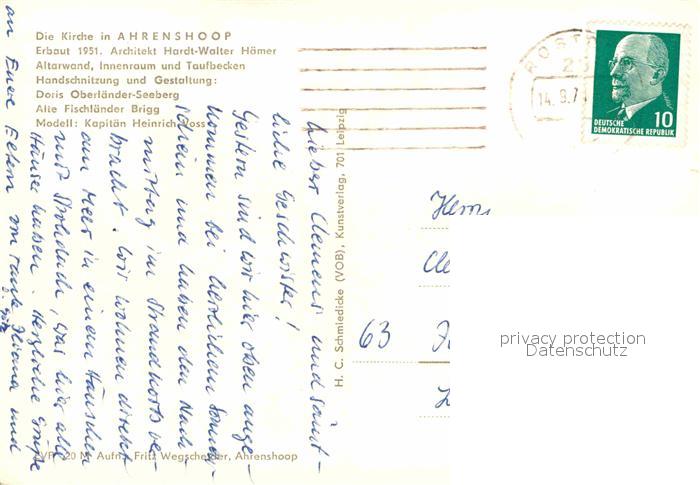 Die Kirche in AHRENSHOOP
Erbaut 1951. Architekt Hardt-Walter Hämer
Altarwand, Innenraum und Taufbecken
Handschnitzung und Gestaltung:
Doris Oberländer-Seeberg
Alte Fischländer Brigg
Modell: Kapitän Heinrich Voss
H. C. Schmiedicke (VOB), Kunstverlag, 701 Leipzig
20 M Aufn.: Fritz Wegscheider, Ahrenshoop
14.9.7
10
DEUTSCHE
DEMOKRATISCHE REPUBLIK
Lieber Clemens und sämt-
liche Geschwister!
Gestern sind wir hier oben ange-
kommen bei herrlichem Sonnen-
schein und haben den Nach-
mittag im Strandkorb ver-
bracht. Wir wohnen direkt
am Meer in einem Häuschen
mit Strohdach, was hier alle
Häuser haben. Herzliche Grüße
an Eure Eltern von Tante und
63
privacy protection
Datenschutz